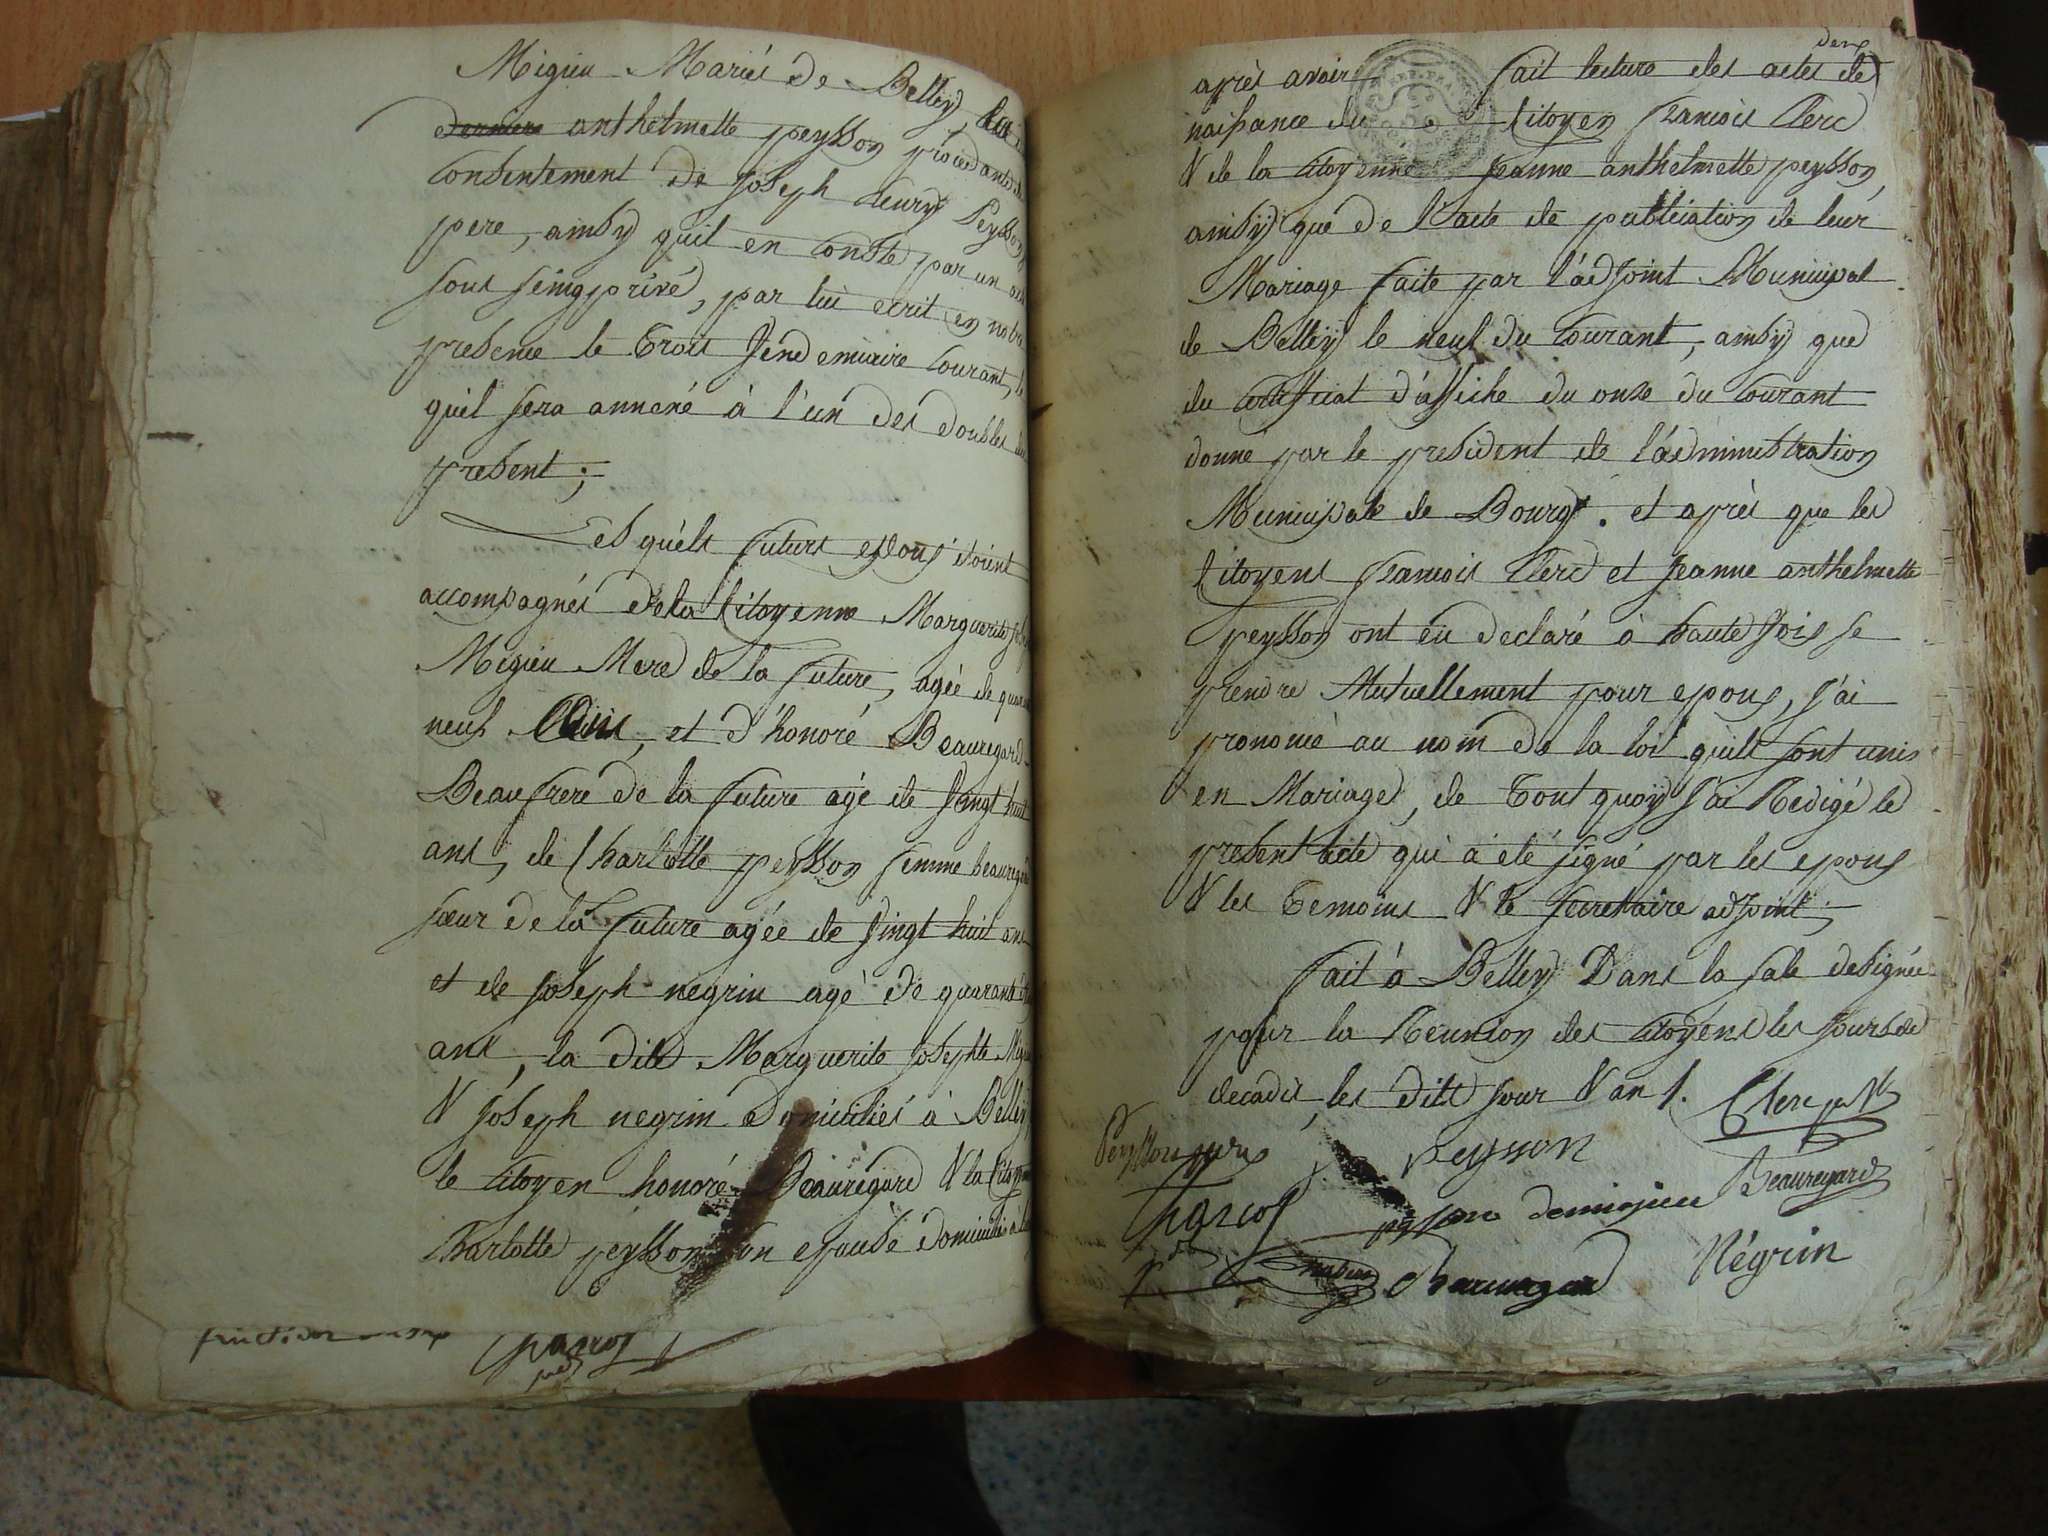 Migieu Mariés de Belley, la
derniere anthelmette peysson procedant du
Consentement de joseph fleury Peysson
pere, ainsy quil en Conste par un acte
sous seing privé, par lui ecrit en notre
presence le Trois Vendemiaire Courant, le
quel sera annexé à l'un des doubles du
present;
Lesquels futurs epoux etoient
accompagnés de la Citoyenne Marguerite
Migieu Mere de la future, agée de quarante
neuf ans, et d'honoré Beauregard
Beaufrere de la future agé de Vingt huit
ans, de Charlotte peysson femme beauregard
sœur de la future agée de Vingt huit ans
et de joseph negrin agé de quarante
ans, la dite Marguerite josephte Migieu
& joseph negrin Domiciliés à Belley
le Citoyen honoré Beauregard & la Citoyenne
Charlotte peysson son epouse domiciliés à
fructidor
après avoir fait lecture des actes de
naissance du Citoyen francois Clerc
& de la Citoyenne jeanne anthelmette peysson,
ainsy que de l'acte de publication de leur
Mariage faite par l'adjoint Municipal
de Belley le neuf du Courant, ainsy que
du certificat d'affiche du onze du Courant
donné par le president de l'administration
Municipale de Bourg. et après que les
Citoyens francois Clerc et jeanne anthelmette
peysson ont eu declaré à haute Voix se
prendre Mutuellement pour epoux, j'ai
prononcé au nom de la loi quils sont unis
en Mariage, de Tout quoy j'ai Redigé le
present acte qui a eté signé par les epoux
& les Temoins & le secretaire adjoint;
fait à Belley Dans la sale designée
pour la Reunion des Citoyens les jours de
decadis, les dits jour & an /. Clerc
Peysson pere Peysson
Beauregard
peysson demigieu
Beauregard Négrin